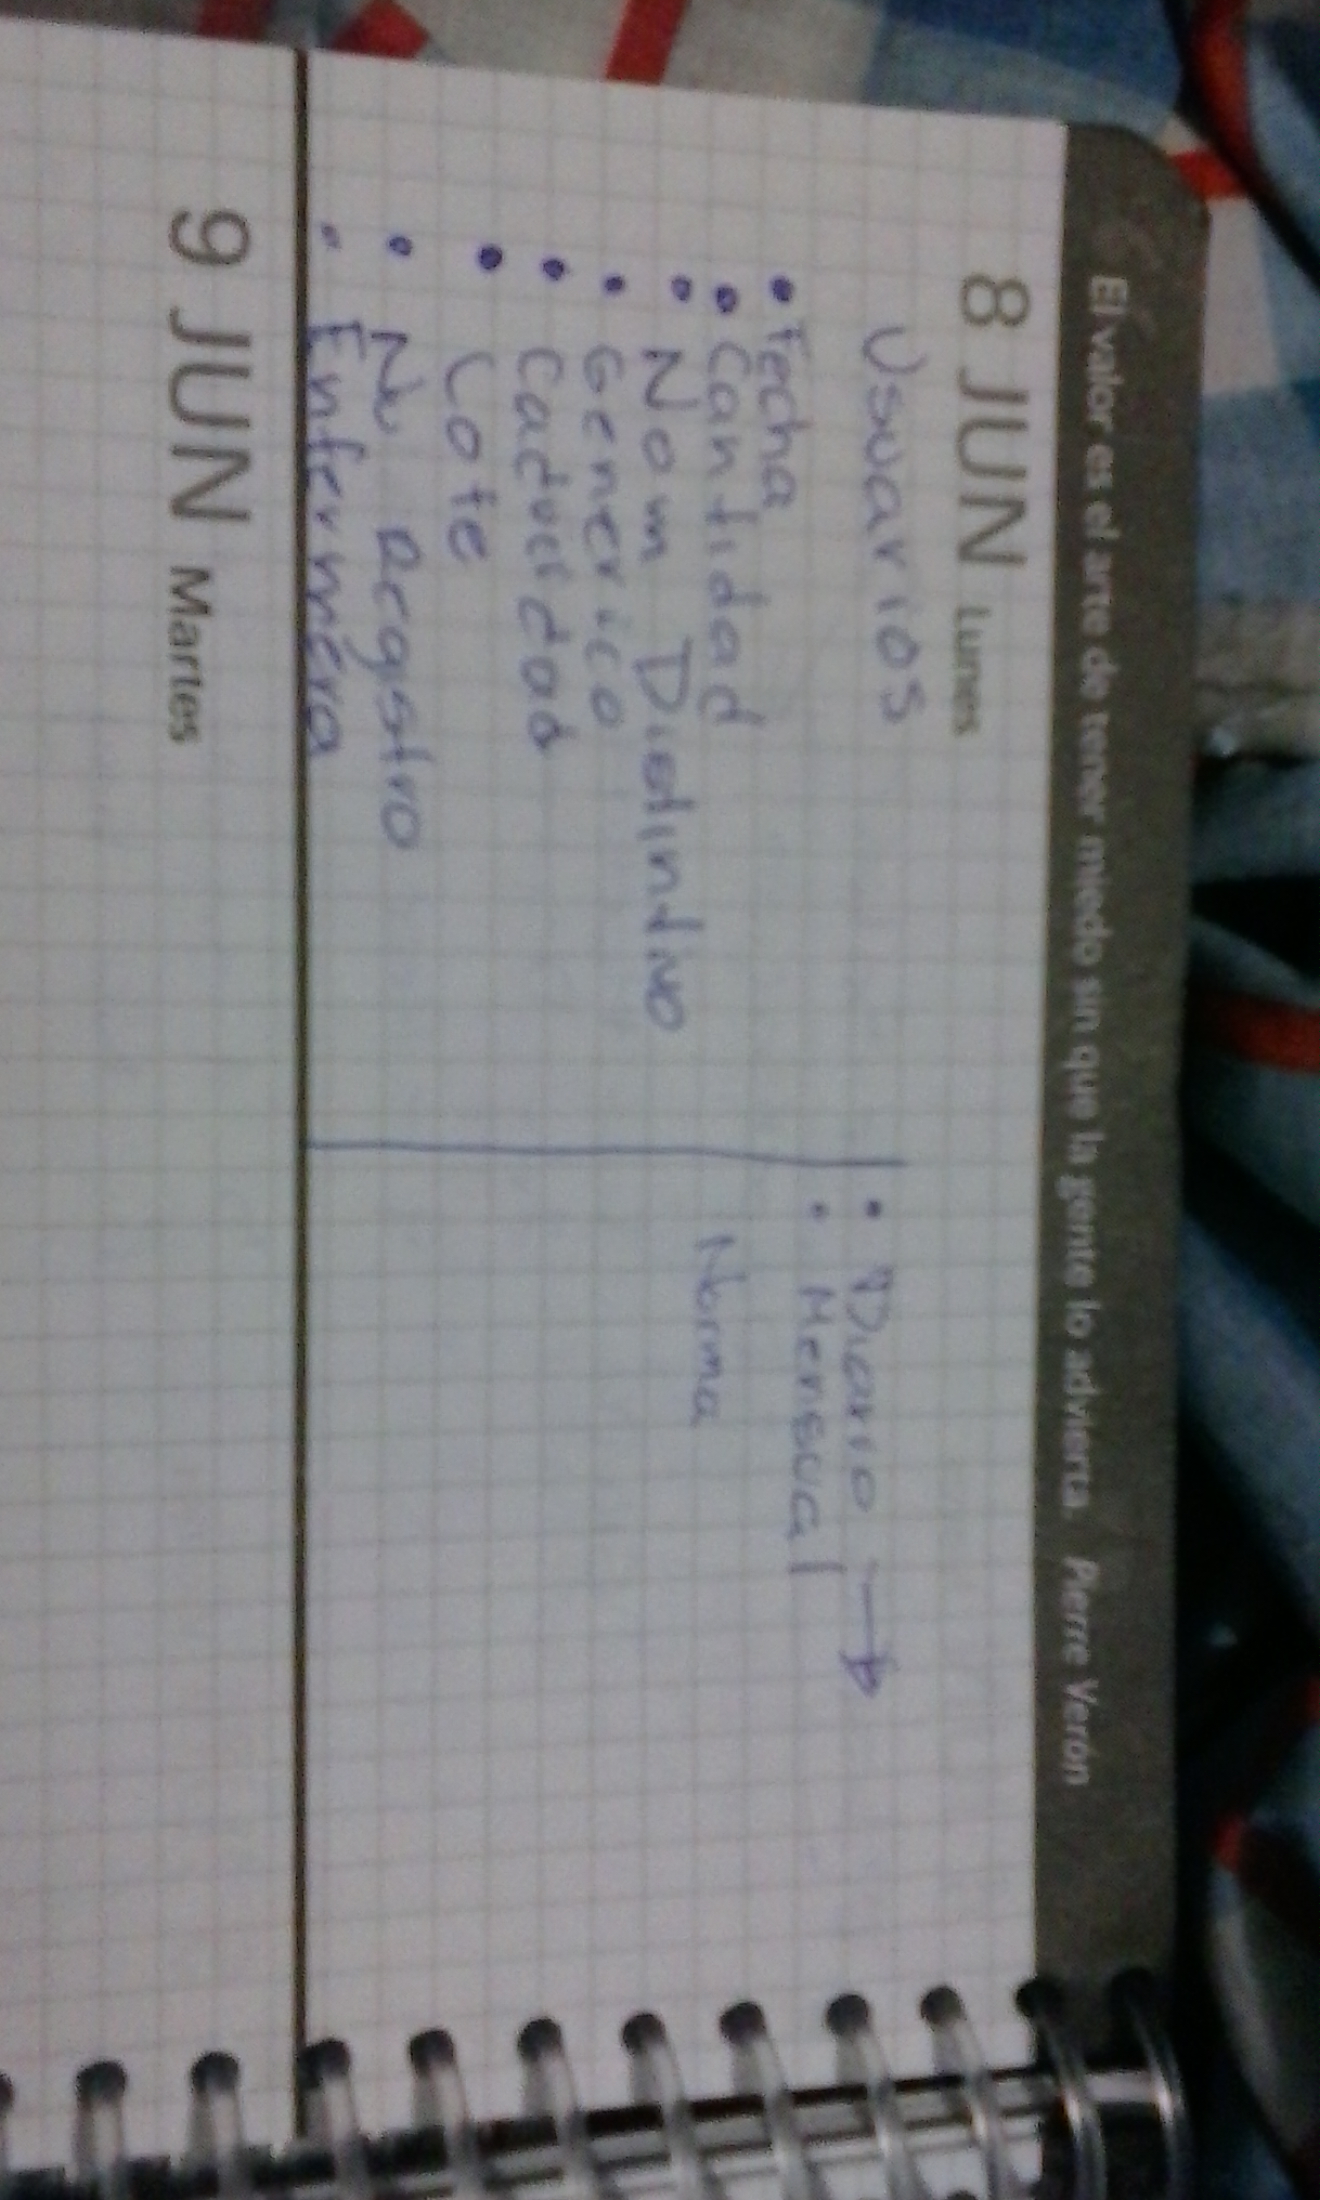 El valor es el arte de tener miedo sin que la gente lo advierta. Pierre Verón
8 JUN Lunes
Usuarios
• Fecha
• Cantidad
• Nom Distintivo
• Generico
• Caducidad
• Lote
• Nu Regstro
• Enfermera
• Diario →
• Mensual
Norma
9 JUN Martes